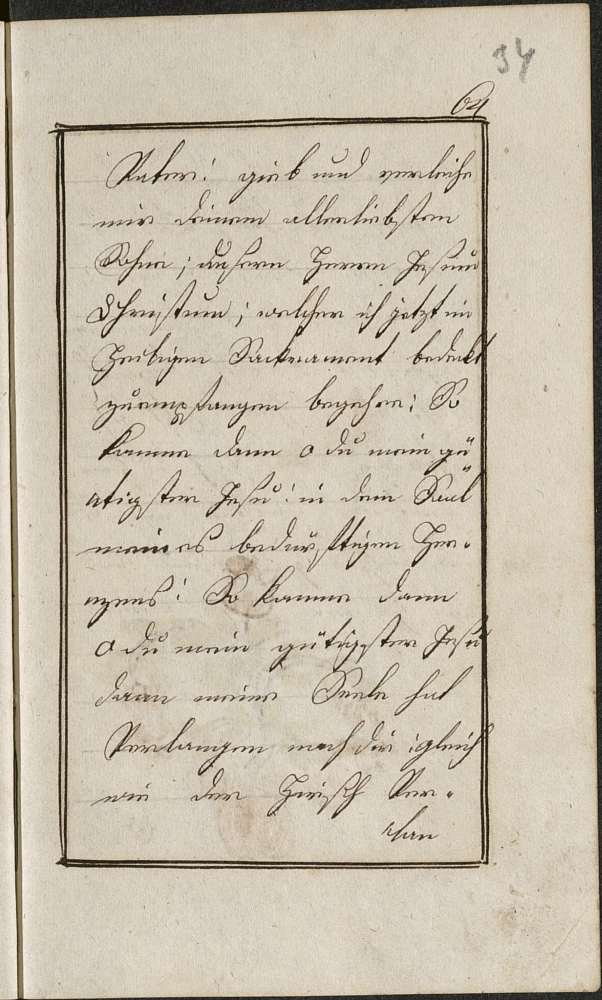 34
64
Vater! gieb und verleihe
mir deinen allerliebsten
Sohne; unsern Herren Jesum
Christum; welchen ich jetzt im
Heiligen Sackrament bedekt
zuempfangen begehre; So
komme dann o du mein gü
atigster Jesu! in den Saal
meines bedürftigen Her-
zens! So komme dann
o du mein gütigster Jesu
dann meine Seele hat
Verlangen nach dir; gleich
wie der Hirsch Ver-
lan